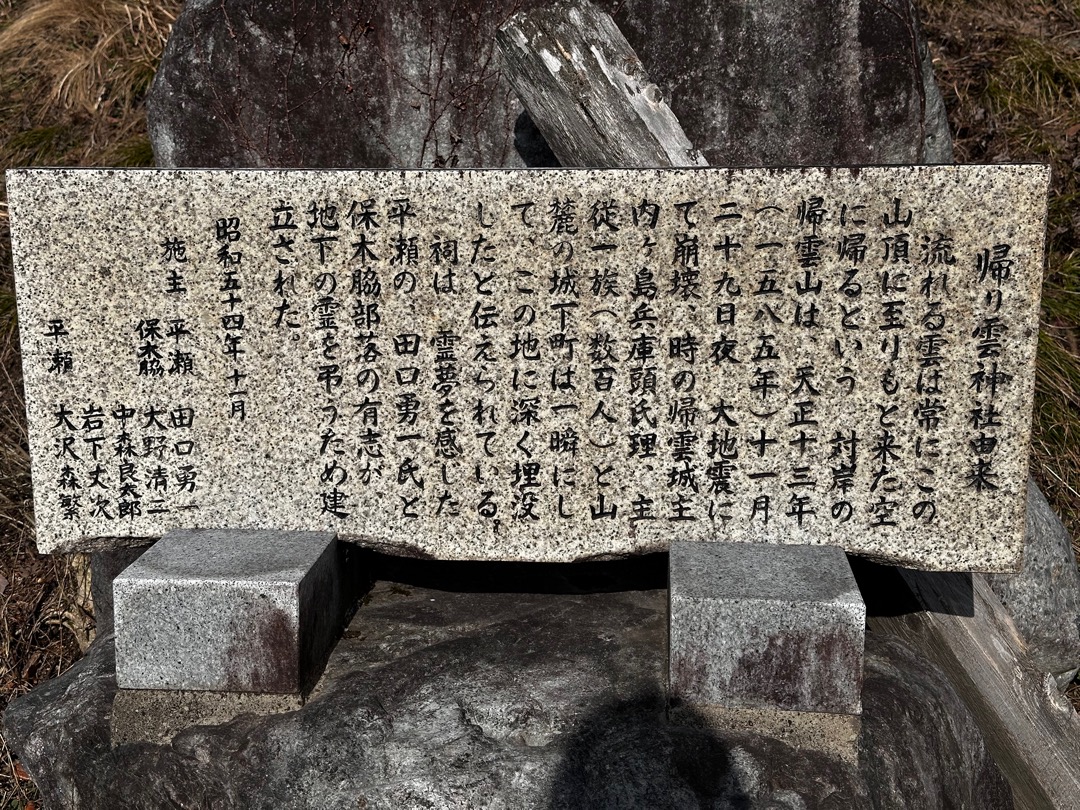 帰り雲神社由来
流れる雲は常にこの
山頂に至りもと来た空
に帰るという 対岸の
帰雲山は、天正十三年
(一五八五年)十一月
二十九日夜 大地震に
て崩壊、時の帰雲城主
内ヶ島兵庫頭氏理、主
従一族(数百人)と山
麓の城下町は一瞬にし
て、この地に深く埋没
したと伝えられている。
祠は 霊夢を感じた
平瀬の、田口勇一氏と
保木脇部落の有志が、
地下の霊を弔うため建
立された。
昭和五十四年 十一月
施主 平瀬 田口勇一
保木脇 大野清二
中森良太郎
岩下丈次
平瀬 大沢森繁